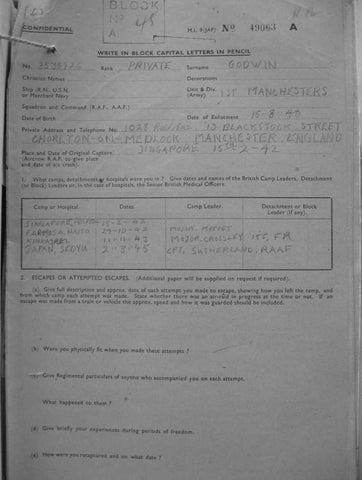 CONFIDENTIAL
BLOCK
No 45
A.
M.I. 9/JAP/ No 49063 A
WRITE IN BLOCK CAPITAL LETTERS IN PENCIL
No. Rank PRIVATE Surname GODWIN
Christian Names Decorations
Ship (R.N., U.S.N. or Merchant Navy Unit & Div. (Army) 1ST MANCHESTERS
Squadron and Command (R.A.F., A.A.F.)
Date of Birth Date of Enlistment 15-8-40
Private Address and Telephone No. 13 BLACKSTOCK STREET
CHORLTON-ON-MEDLOCK MANCHESTER ENGLAND
Place and Date of Original Capture. SINGAPORE 15-2-42
(Aircrew R.A.F. to give place
and date of a/c crash).
1. What camps, detachments or hospitals were you in? Give dates and names of the British Camp Leaders, Detachment
(or Block) Leaders or, in the case of hospitals, the Senior British Medical Officers.
Camp or Hospital. Dates. Camp Leader. Detachment or Block Leader (if any).
SINGAPORE, 15-2-42
FARMOSA, HAITO 29-10-42 MAJOR. MOFFET
KINKASEKI 11-11-43 MAJOR. CROSSLEY 155, FA
JAPAN, SEDYU 2-3-45 CPT, SUTHERLAND, RAAF
2. ESCAPES OR ATTEMPTED ESCAPES. (Additional paper will be supplied on request if required).
(a) Give full description and approx. date of each attempt you made to escape, showing how you left the camp, and
from which camp each attempt was made. State whether there was an air-raid in progress at the time or not. If an
escape was made from a train or vehicle the approx. speed and how it was guarded should be included.
(b) Were you physically fit when you made these attempts?
(c) Give Regimental particulars of anyone who accompanied you on each attempt.
What happened to them?
(d) Give briefly your experiences during periods of freedom.
(e) How were you recaptured and on what date?